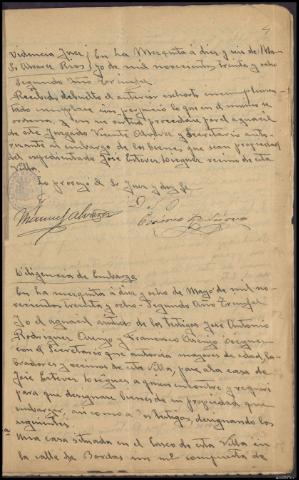 4
Providencia Juez / En La Mezquita á diez y seis de Ma-
Sr. Alvarez Rios / yo de mil novecientos treinta y ocho
Segundo Año Triunfal
Recibido debulto el anterior exhorto
tado cumplase sin perjuicio lo que en el mismo se
ordena, y en su virtud procedase por el aguacil
de este Juzgado Vicente Alvarez y Secretario auto-
rizante al embargo de los bienes, que sean propiedad
del expedientado José Estevez vecino de esta
Villa.
Lo proveyo el Sr Juez y doy fé
Manuel Alvarez
Diligencia de Embargo
En La Mezquita á diez y ocho de Mayo de mil no-
vecientos treinta y ocho Segundo Año Triunfal
Yo el aguacil antes de los testigos José Antonio
Rodriguez y Francisco
con el Secretario que autoriza mayores de edad la-
bradores y vecinos de esta villa, pase a la casa de
José Estevez á quien encontre y requeri
para que designase bienes de su propiedad que
embargar, asi como a los testigos, designando los
siguientes
Una casa situada en el casco de esta Villa en
la calle de compuesta de